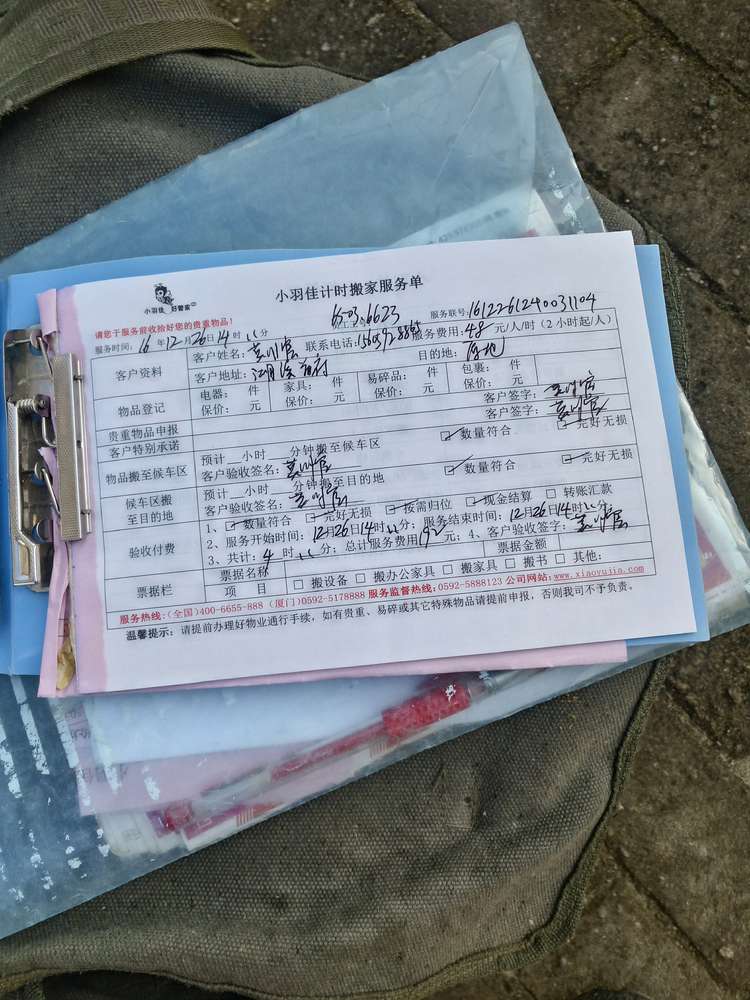 小羽佳计时搬家服务单
小羽佳 好管家
请您于服务前收拾好您的贵重物品！
服务联号:1612261240031104
服务时间: 16 年 12 月 26 日 14 时 分
客户资料
客户姓名:
联系电话:
服务费用: 48 元/人/时 (2 小时起/人)
客户地址:
目的地:
物品登记
电器: 件
家具: 件
易碎品: 件
包裹: 件
保价: 元
保价: 元
保价: 元
保价: 元
贵重物品申报
客户签字:
客户特别承诺
客户签字:
物品搬至候车区
预计 小时 分钟搬至候车区
客户验收签名:
数量符合
完好无损
候车区搬至目的地
预计 小时 分钟搬至目的地
客户验收签名:
数量符合
完好无损
验收付费
1、 数量符合 完好无损 按需归位 现金结算 □ 转账汇款
2、服务开始时间: 12月26日14时 分; 服务结束时间: 12月26日 时 分
3、共计: 4 时 分; 总计服务费用 192 元; 4、客户验收签字:
票据栏
票据名称
票据金额
项 目
□ 搬设备 □ 搬办公家具 □ 搬家具 □ 搬书 □ 其他:
服务热线:(全国)400-6655-888 (厦门)0592-5178888 服务监督热线:0592-5888123 公司网站:www.xiaoyujia.com
温馨提示: 请提前办理好物业通行手续，如有贵重、易碎或其它特殊物品请提前申报，否则我司不予负责。